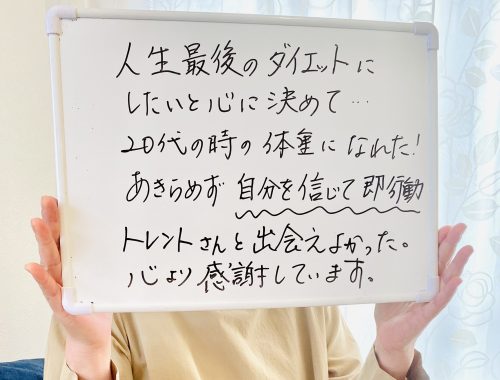 人生最後のダイエットに
したいと心に決めて…
20代の時の体重になれた!
あきらめず自分を信じて即行動
トレントさんと出会えよかった。
心より感謝しています。